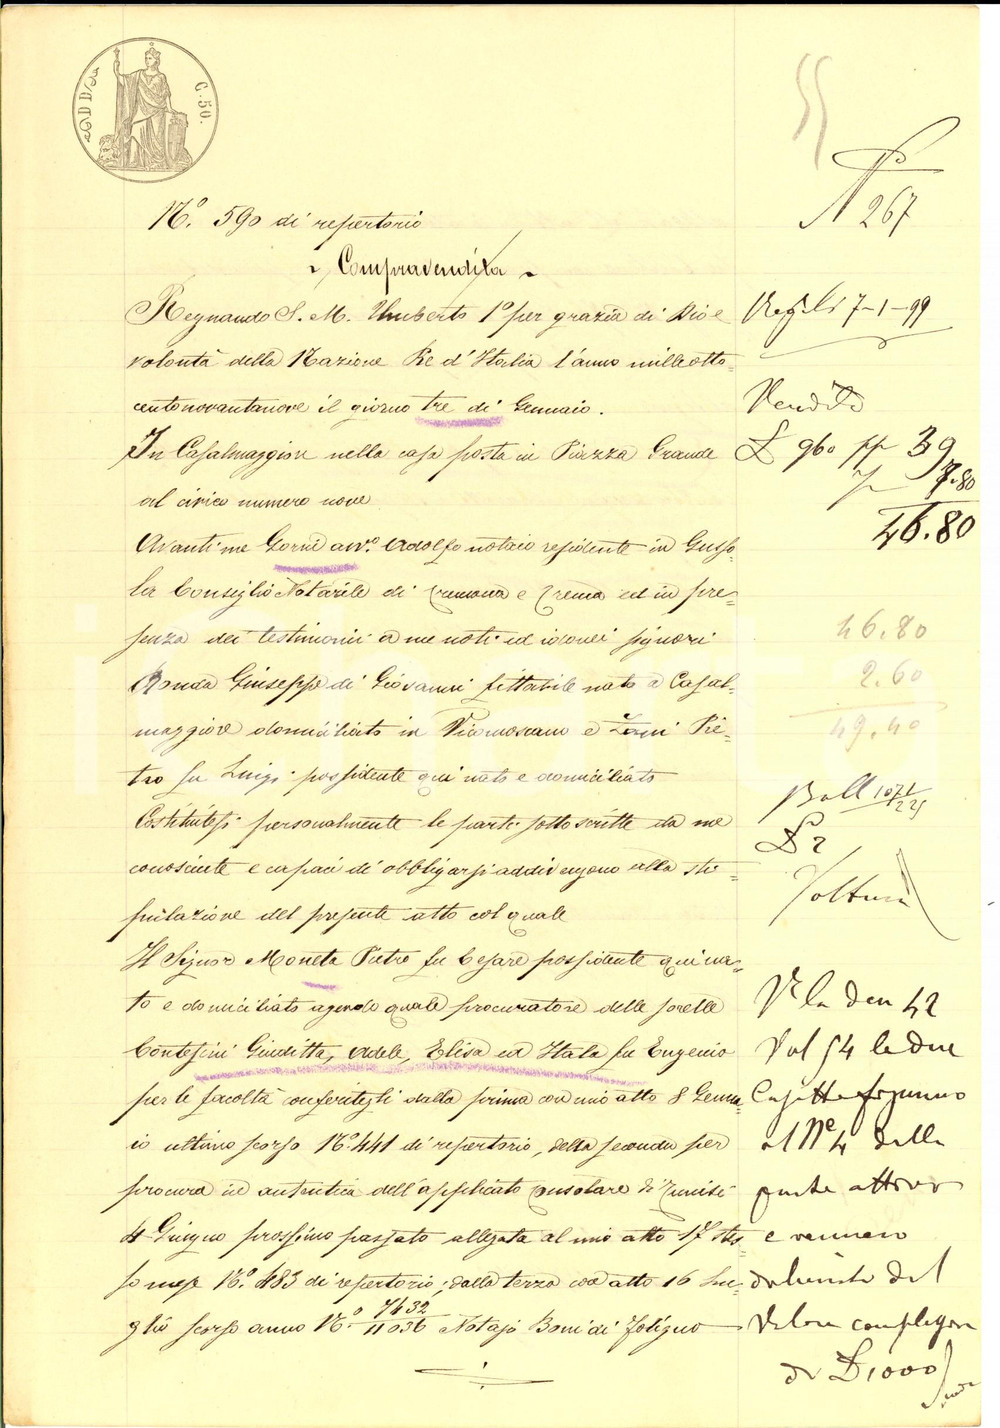 C. 50.
N.º 267
N.º 590 di repertorio
Compravendita
Regnando S. M. Umberto 1º per grazia di Dio e
volontà della Nazione Re d'Italia l'anno milleotto-
centonovantanove il giorno tre di Gennaio.
In Casalmaggiore nella casa posta in Piazza Grande
al civico numero nove
Avanti me Gorni avv.º Adolfo notaio residente in Gusso-
la Consiglio Notarile di Cremona e Crema ed in pre-
senza dei testimonii a me noti ed idonei signori
Ronda Giuseppe di Giovanni fittabile nato a Casal-
maggiore domiciliato in Vicomoscano e Zani Pie-
tro fu Luigi possidente qui nato e domiciliato
Costituitesi personalmente le parti sottoscritte da me
conosciute e capaci di obbligarsi addivengono alla sti-
pulazione del presente atto col quale
Il Signor Moneta Pietro fu Cesare possidente qui na-
to e domiciliato agendo quale procuratore delle sorelle
Contesini Giuditta, Adele, Elisa ed Itala fu Eugenio
per le facoltà conferitegli dalla prima con mio atto 8 Genna-
io ultimo scorso N.º 441 di repertorio, della seconda per
procura in autentica dell'applicato consolare di Tunisi
4 Giugno prossimo passato allegata al mio atto 17 stes-
so mese N.º 483 di repertorio; dalla terza con atto 16 Lu-
glio scorso anno N.º 7432/11036 Notajo Boni di Foligno
7-1-99
Vendita
£ 960 pp 39
7.80
46.80
46.80
2.60
49.40
Boll
£ 2
Voltura
V la den 42
Vol 54 le due
Casette
al N.º 4 della
parte attiva
e vennero
del
Valore
di £ 1000